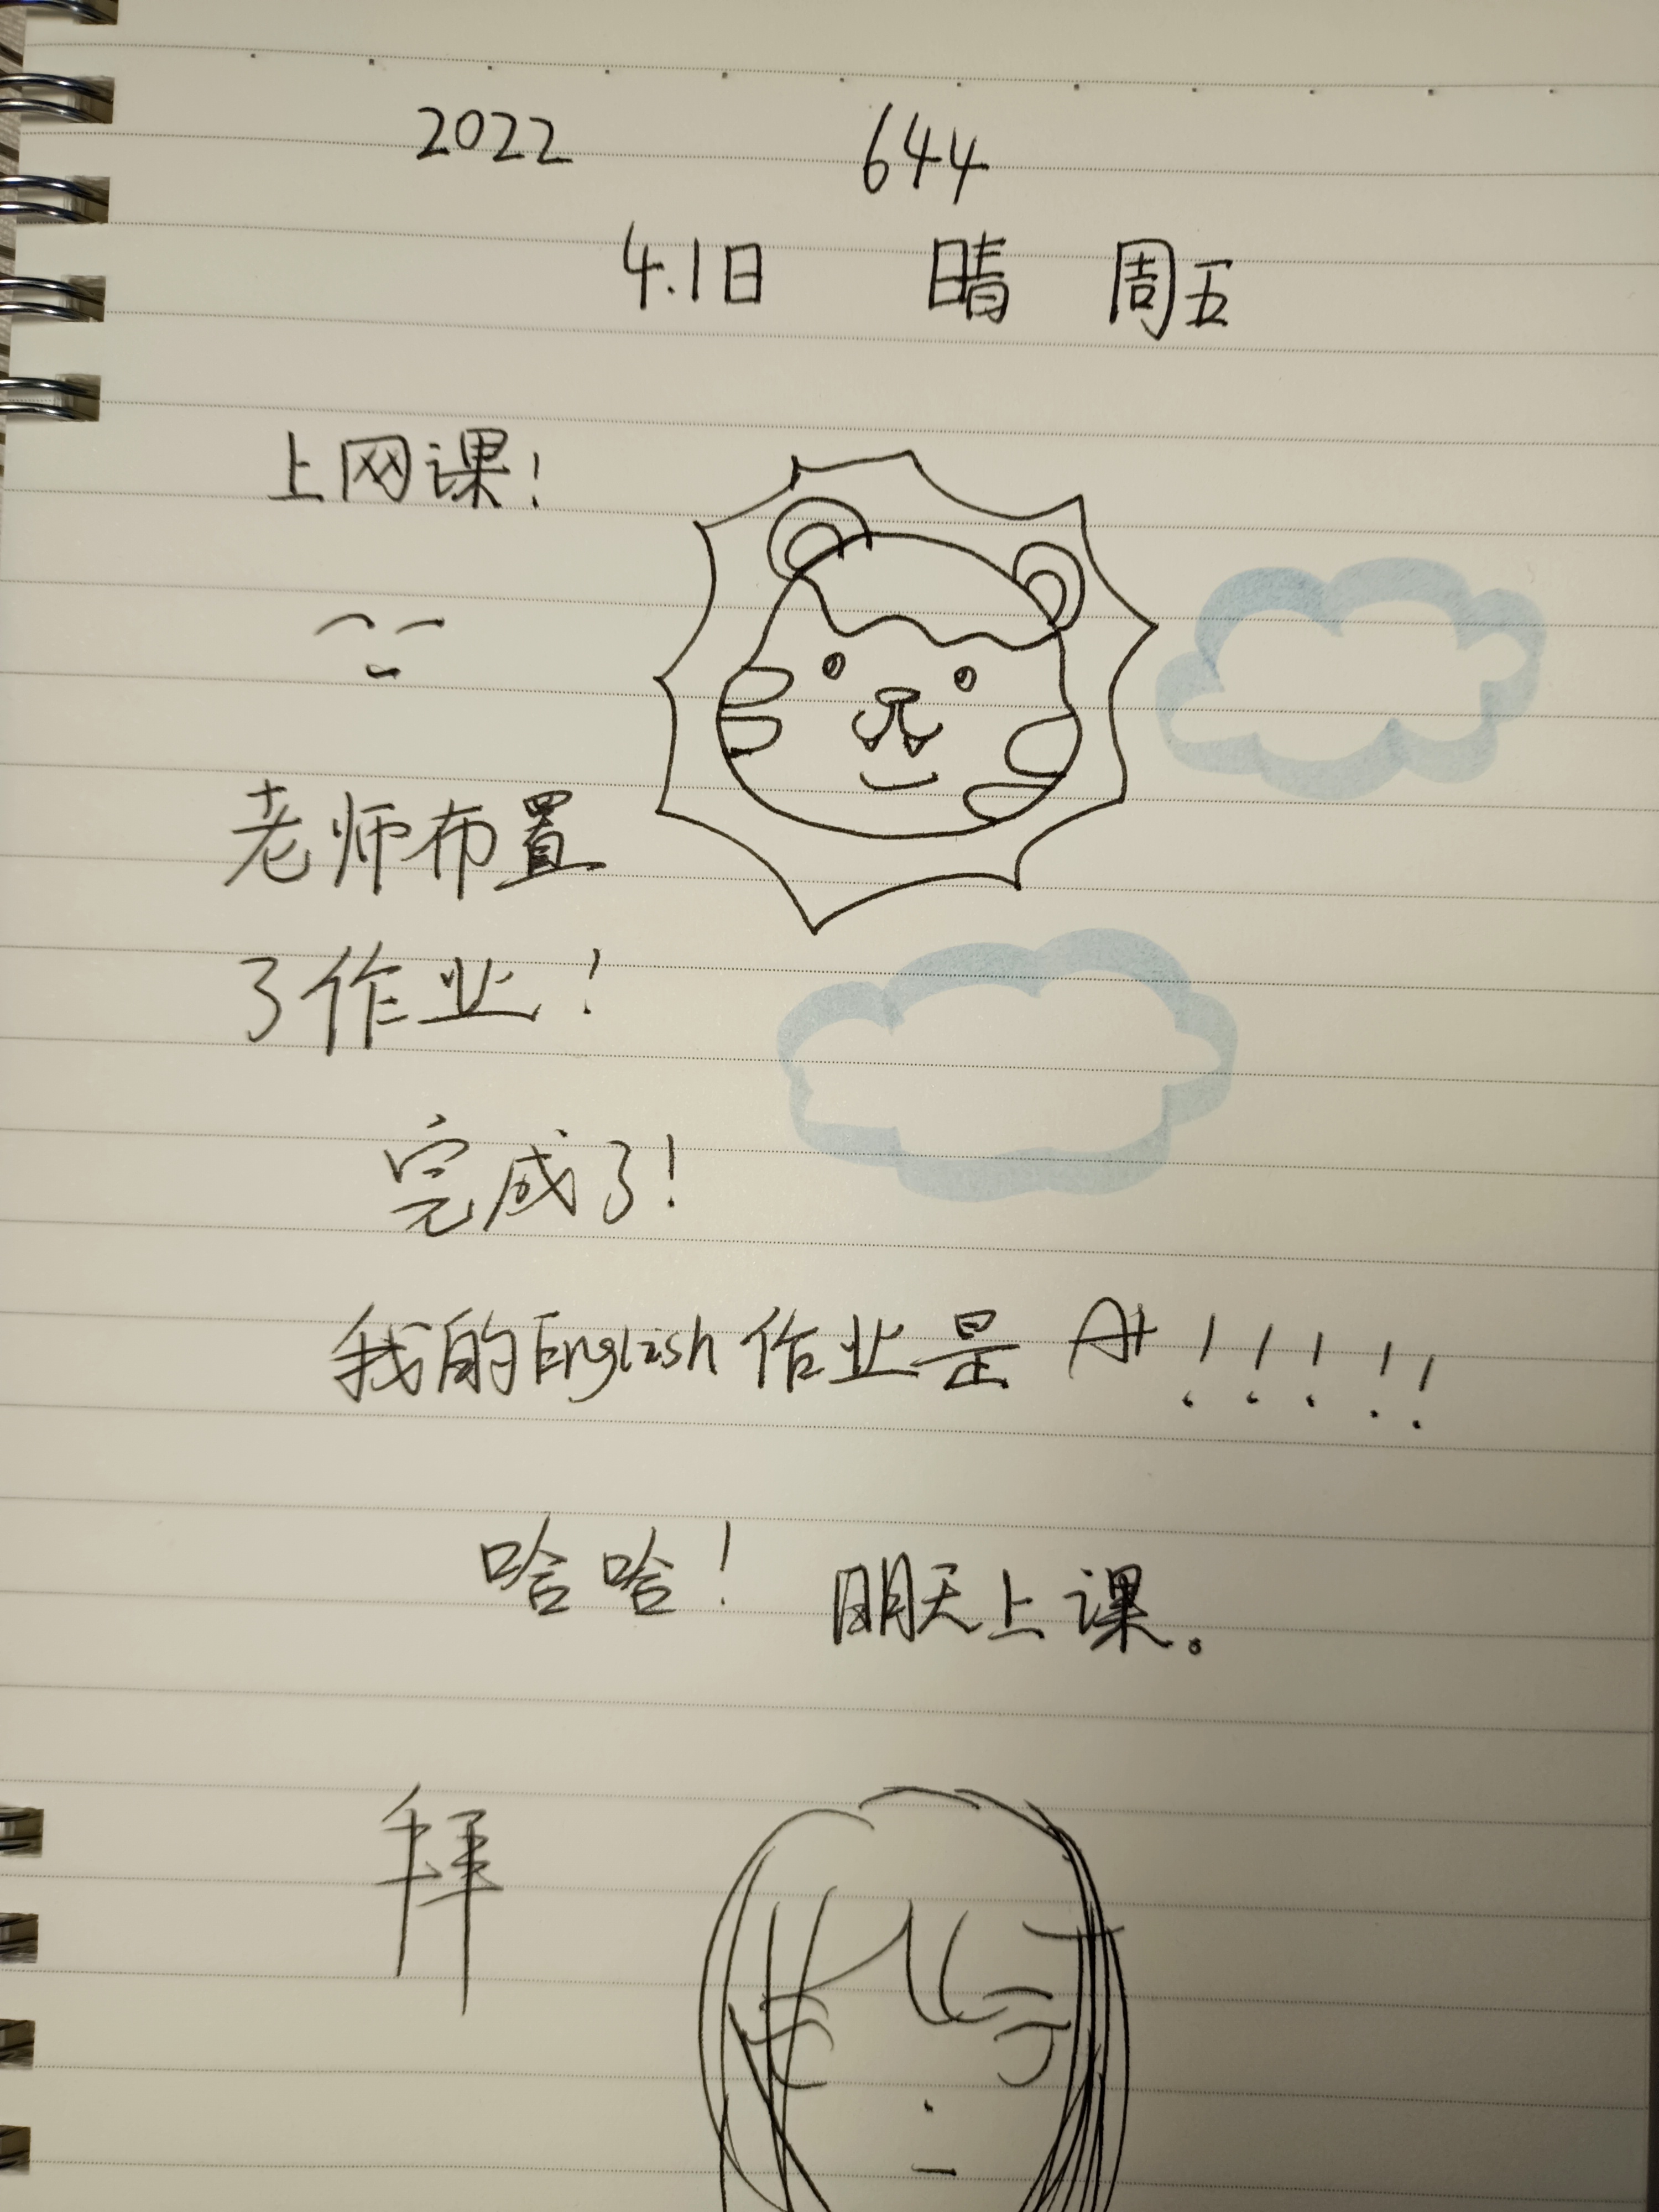 2022 644
4.1日 晴 周五
上网课!
老师布置
了作业!
完成了!
我的English作业是 A+!!!!!
哈哈! 明天上课。
拜